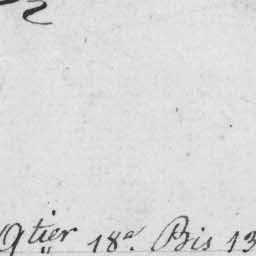 9tier 18a. Bis 13